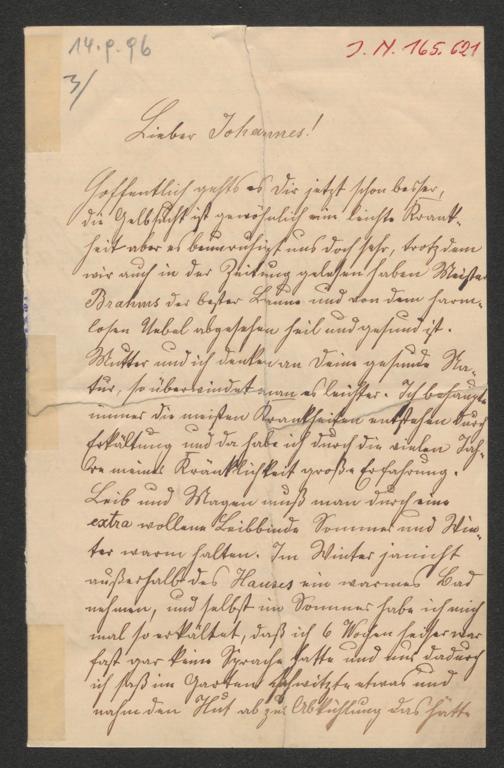 14.9.96
3/
J. N. 165.621
Lieber Johannes!
Hoffentlich gehts es Dir jetzt schon besser,
die Gelbsucht ist gewöhnlich eine leichte Krank-
heit aber es beunruhigt uns doch sehr, trotzdem
wir auch in der Zeitung gelesen haben Meister
Brahms der bester Laune und von dem harm-
losen Uebel abgesehen heil und gesund ist.
Mutter und ich denken an Deine gesunde Na-
tur, so überwindet man es leichter. Ich behaupte
immer die meisten Krankheiten entstehen durch
Erkältung und da habe ich durch die vielen Jah-
re meiner Kränklichkeit große Erfahrung.
Leib und Magen muß man durch eine
extra wollene Leibbinde Sommer und Win-
ter warm halten. Im Winter ja nicht
außerhalb des Hauses ein warmes Bad
nehmen, und selbst im Sommer habe ich mich
mal so erkältet, daß ich 6 Wochen heiser war
fast gar keine Sprache hatte und nur dadurch
ich saß im Garten schwitzte etwas und
nahm den Hut ab zur Abkühlung das hätte